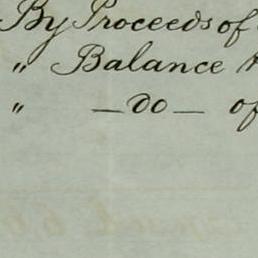 By Proceeds of
" Balance
" — do — of